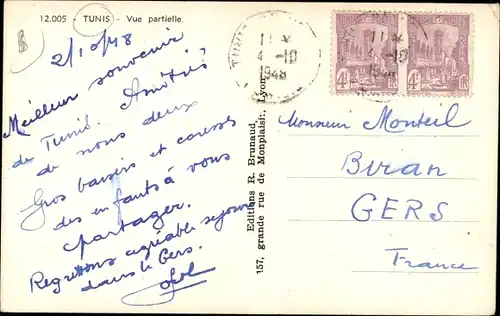 12.005 - TUNIS - Vue partielle.
2/10/48
Meilleur souvenir
de Tunis. Amitiés
de nous deux
Gros baisers et caresses
des enfants à vous
partager.
Regrettons agréable séjour
dans le Gers.
Editions R. Brunaud,
157, grande rue de Monplaisir, Lyon
11 *
4 -10
1948
4F
4F
Monsieur Monteil
Biran
GERS
France